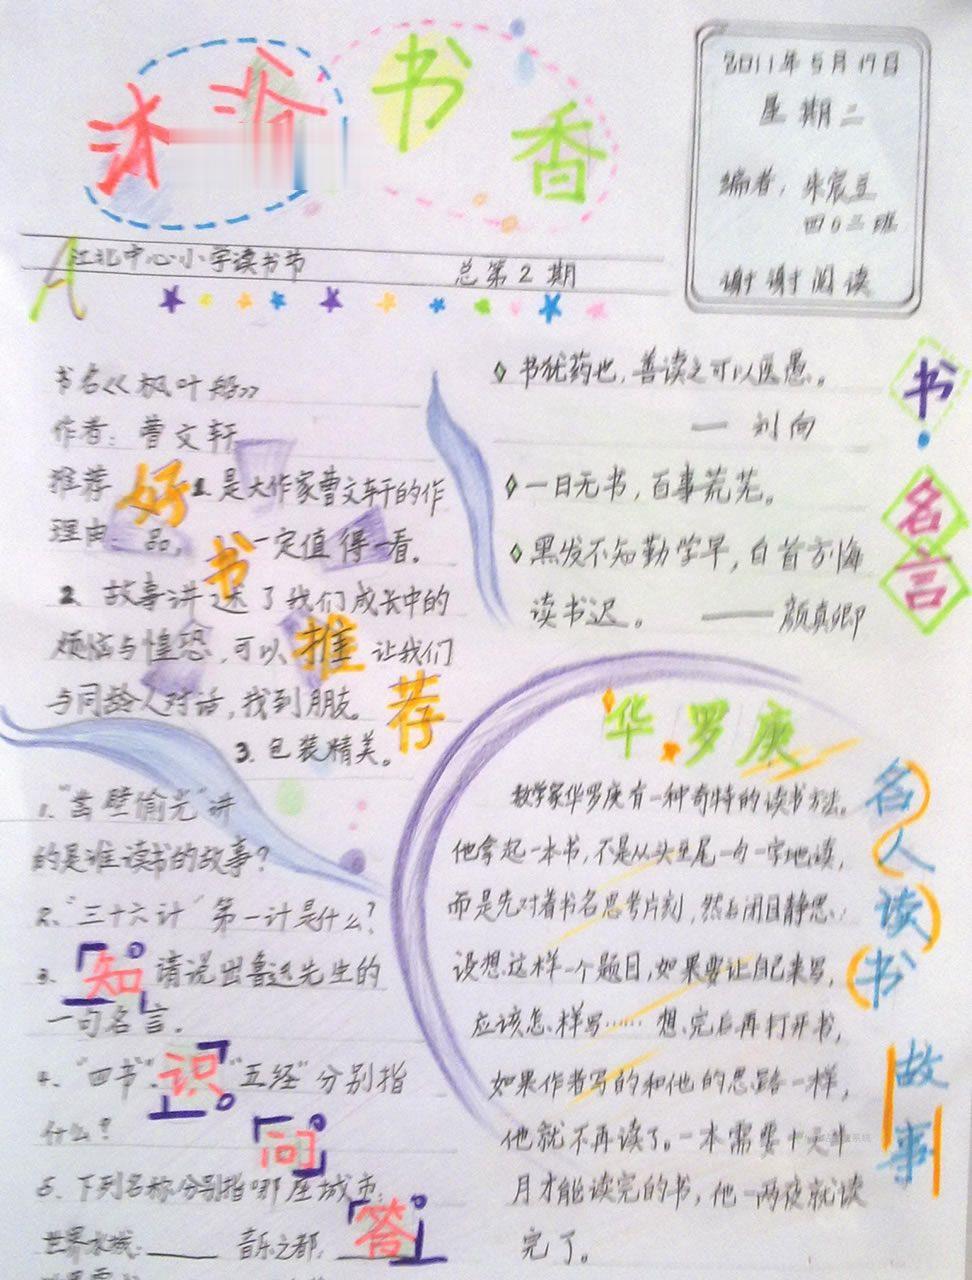 沐浴书香
2011年5月17日
星期二
编者：朱宸立
四0二班
谢谢阅读
江北中心小学读书节
总第2期
书名《枫叶船》
作者：曹文轩
推荐 1.是大作家曹文轩的作
理由：品，一定值得一看。
2、故事讲述了我们成长中的
烦恼与惶恐，可以 让我们
与同龄人对话，找到朋友。
3.包装精美。
好书推荐
书犹药也，善读之可以医愚。
— 刘向
一日无书，百事荒芜。
黑发不知勤学早，白首方悔
读书迟。 ——颜真卿
书名言
1、"凿壁偷光"讲
的是谁读书的故事？
2、"三十六计"第一计是什么？
3、请说出鲁迅先生的
一句名言。
4、"四书"、"五经"分别指
什么？
5、下列名称分别指哪座城市：
世界水城：____ 音乐之都：____
知识问答
华罗庚
数学家华罗庚有一种奇特的读书方法。
他拿起一本书，不是从头至尾一句一字地读，
而是先对着书名思考片刻，然后闭目静思，
设想这样一个题目，如果要让自己来写，
应该怎样写……想完后再打开书，
如果作者写的和他的思路一样，
他就不再读了。一本需要十天半
月才能读完的书，他一两夜就读
完了。
名人读书故事